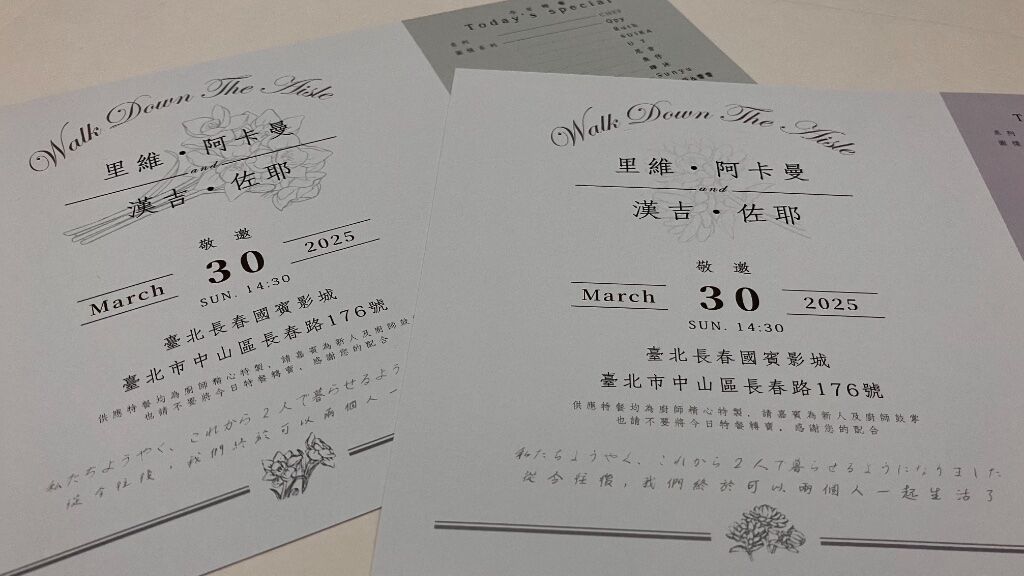 Walk Down The Aisle
里維・阿卡曼
and
漢吉・佐耶
敬邀
March 30 2025
SUN. 14:30
臺北長春國賓影城
臺北市中山區長春路176號
供應特餐均為廚師精心特製，請嘉賓為新人及廚師鼓掌
也請不要將今日特餐轉賣，感謝您的配合
私たちようやく、これから2人で暮らせるよう
從今往後，我們終於可以兩個人一
Today's special
Walk Down The Aisle
里維・阿卡曼
and
漢吉・佐耶
敬邀
March 30 2025
SUN. 14:30
臺北長春國賓影城
臺北市中山區長春路176號
供應特餐均為廚師精心特製，請嘉賓為新人及廚師鼓掌
也請不要將今日特餐轉賣，感謝您的配合
私たちようやく、これから2人で暮らせるようになりました
從今往後，我們終於可以兩個人一起生活了